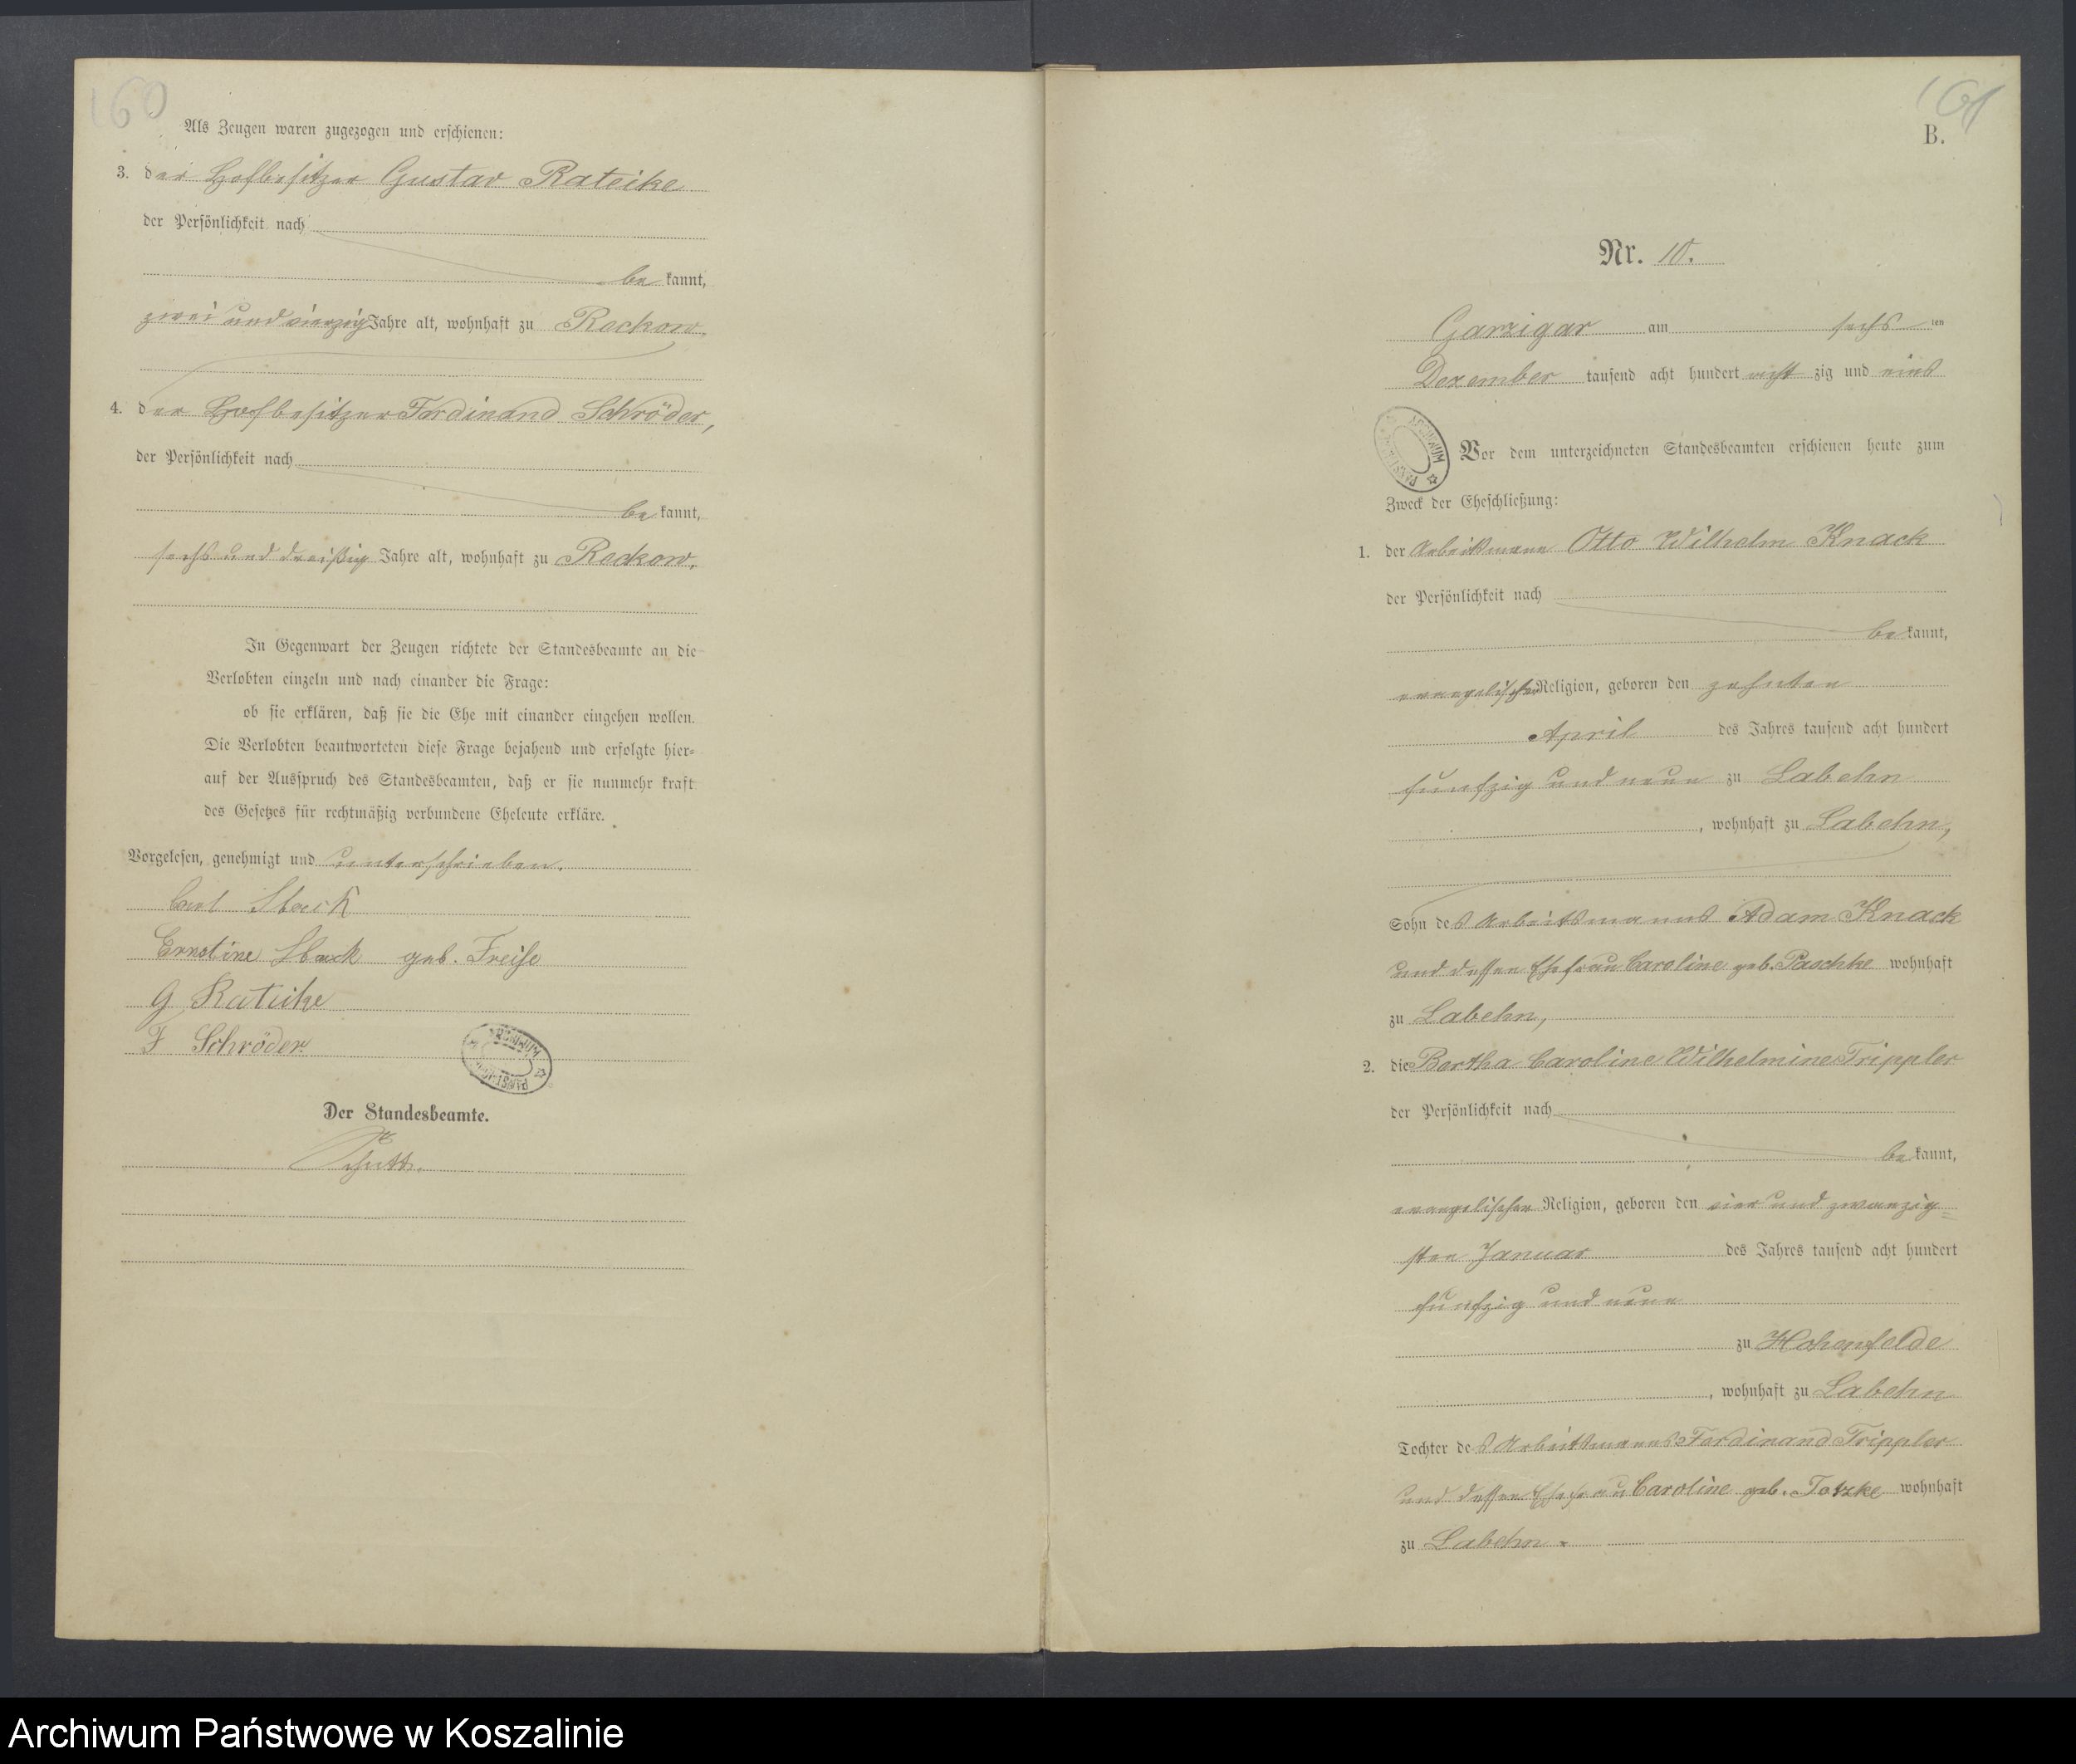 160
Als Zeugen waren zugezogen und erschienen:
3. der Hofbesitzer Gustav Rateike
der Persönlichkeit nach
be kannt,
zwei und vierzig Jahre alt, wohnhaft zu Reckow,
4. der Hofbesitzer Ferdinand Schröder,
der Persönlichkeit nach
be kannt,
sechs und dreißig Jahre alt, wohnhaft zu Reckow.
In Gegenwart der Zeugen richtete der Standesbeamte an die
Verlobten einzeln und nach einander die Frage:
ob sie erklären, daß sie die Ehe mit einander eingehen wollen.
Die Verlobten beantworteten diese Frage bejahend und erfolgte hier-
auf der Ausspruch des Standesbeamten, daß er sie nunmehr kraft
des Gesetzes für rechtmäßig verbundene Eheleute erkläre.
Vorgelesen, genehmigt und unterschrieben.
Carl
Ernstine geb. Freise
G Rateike
F Schröder.
Der Standesbeamte.
161
B.
Nr. 10.
Garzigar am sechs ten
Dezember tausend acht hundert acht zig und eins
Vor dem unterzeichneten Standesbeamten erschienen heute zum
Zweck der Eheschließung:
1. der Arbeitsmann Otto Wilhelm Knack
der Persönlichkeit nach
be kannt,
evangelischer Religion, geboren den zehnten
April des Jahres tausend acht hundert
funfzig und neun zu Labehn
, wohnhaft zu Labehn,
Sohn des Arbeitsmanns Adam Knack
und dessen Ehefrau Caroline geb. Paschke wohnhaft
zu Labehn,
2. die Bertha Caroline Wilhelmine Trippler
der Persönlichkeit nach
be kannt,
evangelischer Religion, geboren den vier und zwanzig=
sten Januar des Jahres tausend acht hundert
funfzig und neun
zu Hohenfelde
, wohnhaft zu Labehn
Tochter des Arbeitsmanns Ferdinand Trippler
und dessen Ehefrau Caroline geb. Totzke wohnhaft
zu Labehn.
Archiwum Państwowe w Koszalinie